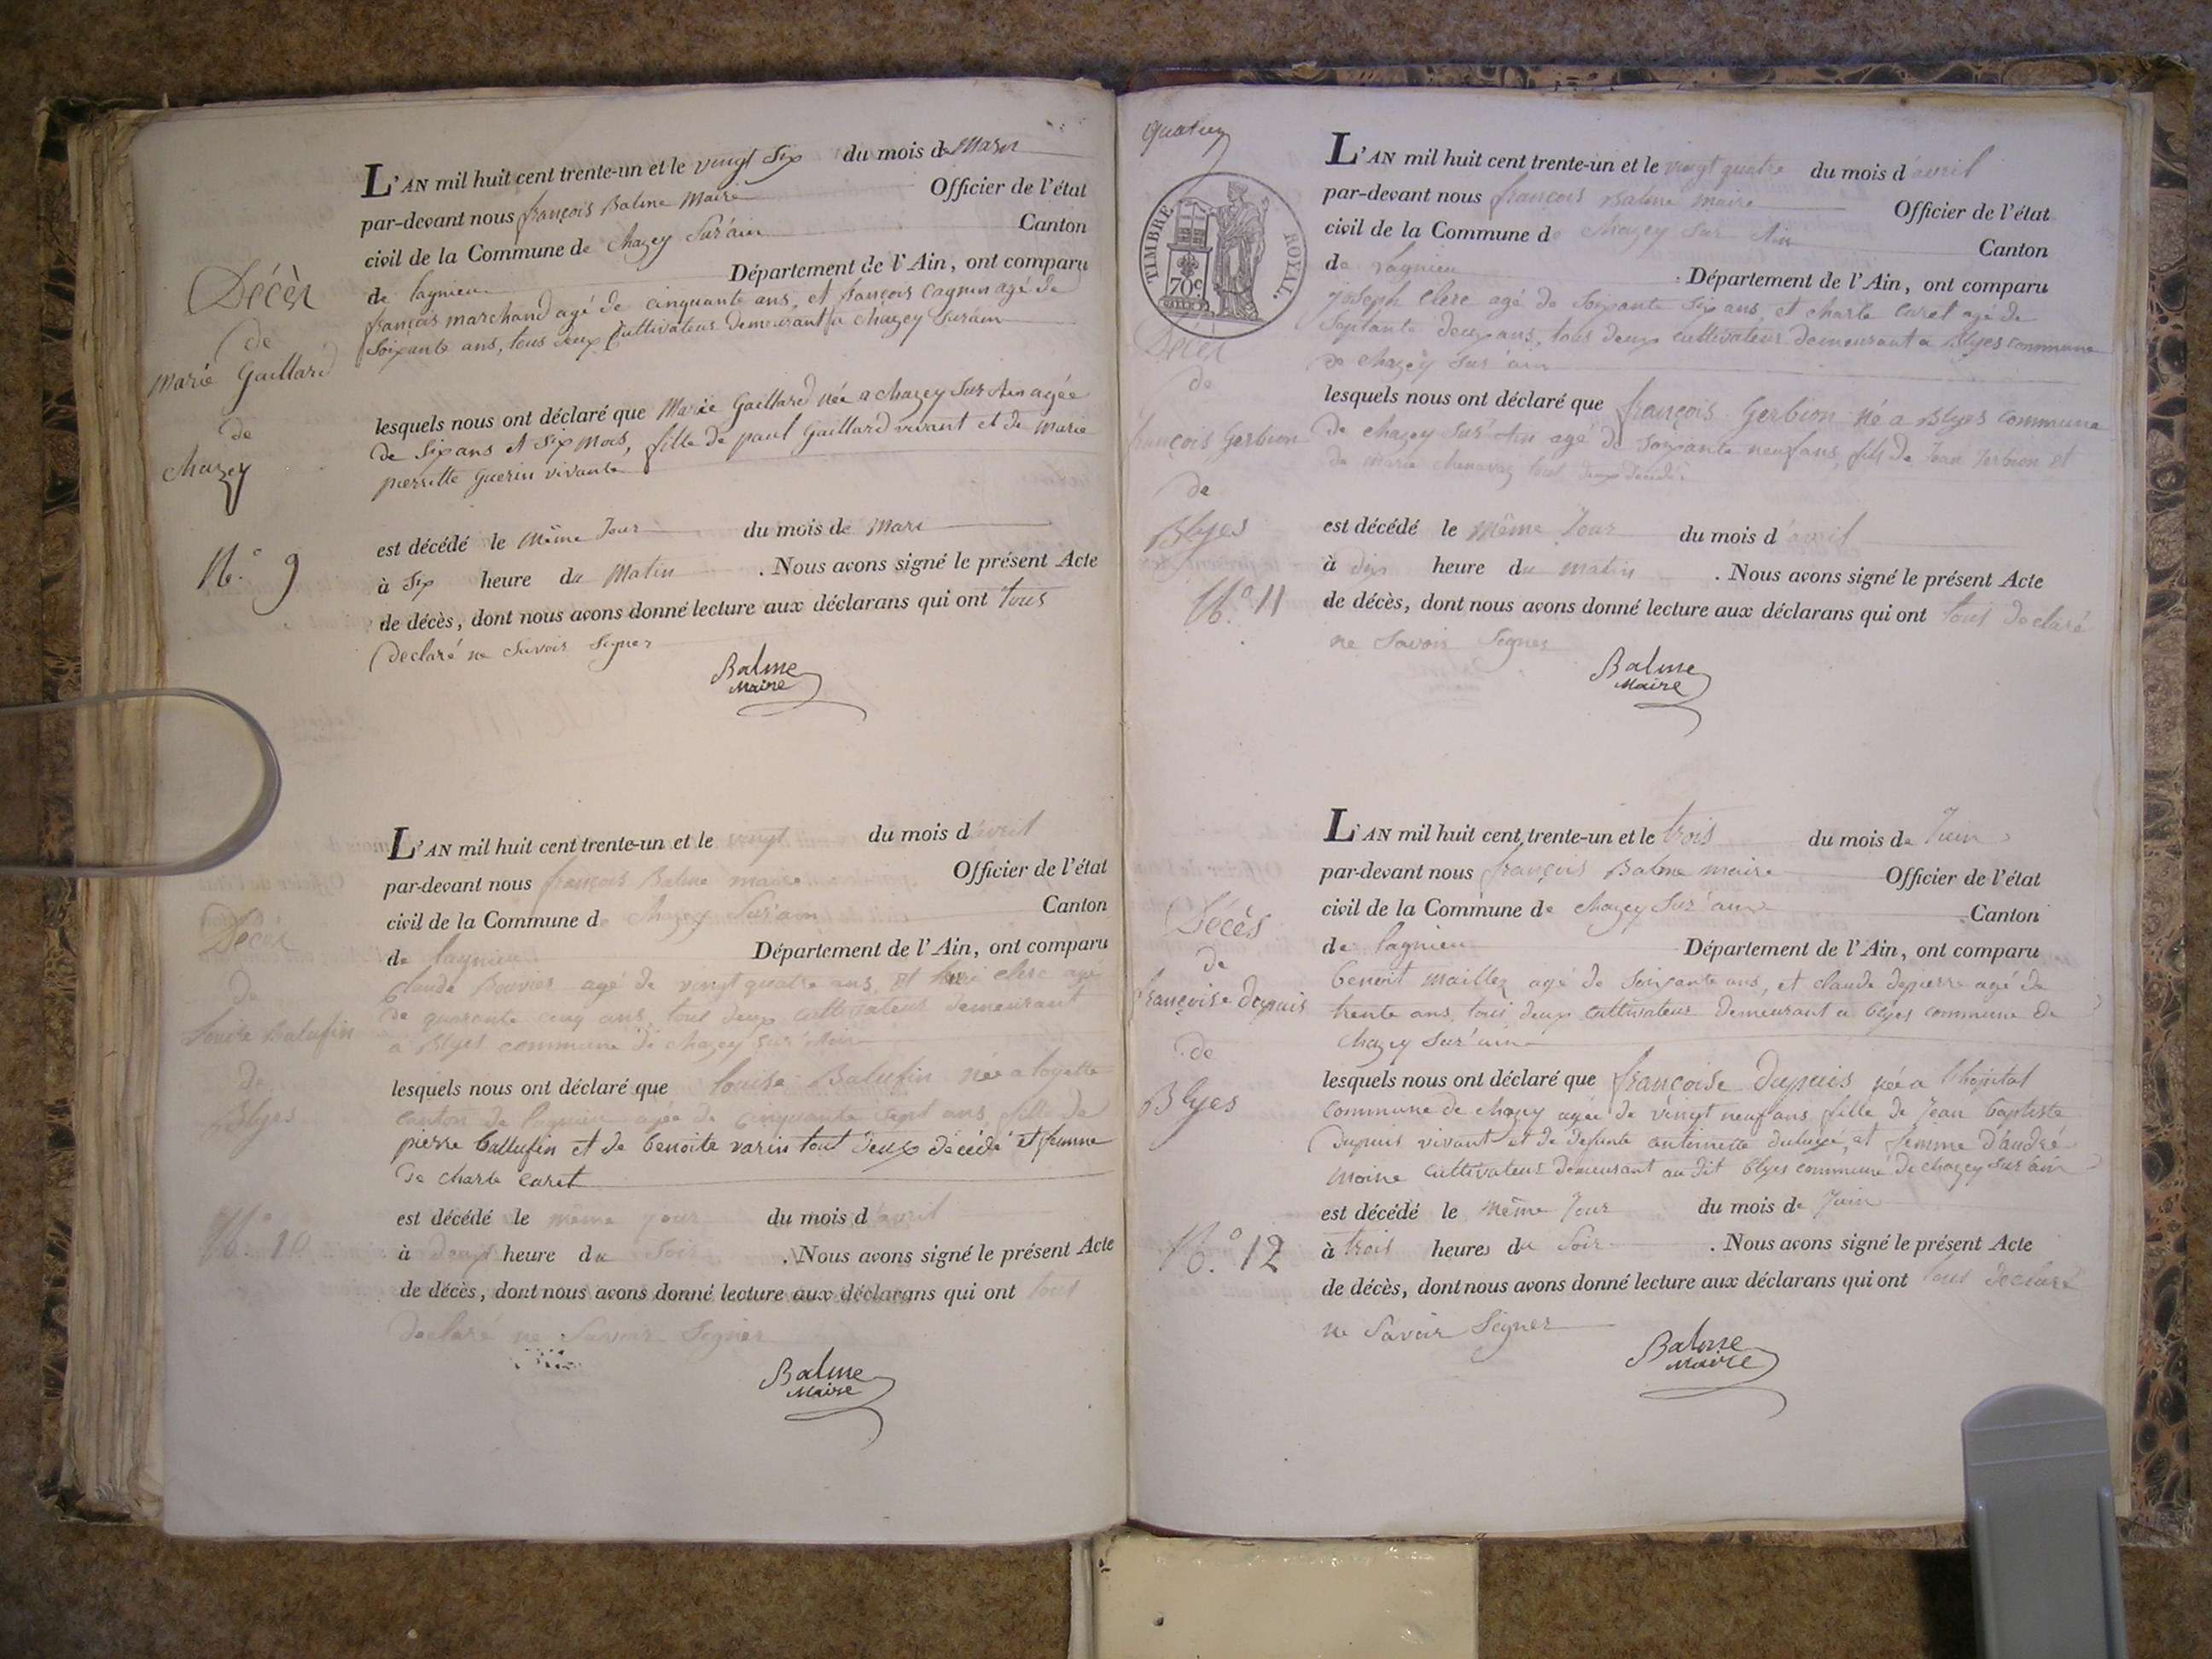 Décès
de
Marie Gaillard
de
Chazey
N.° 9
L'AN mil huit cent trente-un et le vingt six du mois de Mars
par-devant nous françois Balme Maire Officier de l'état
civil de la Commune de Chazey Sur'ain Canton
de lagnieu Département de l'Ain, ont comparu
françois marchand agé de cinquante ans, et françois agé de
Soixante ans, tous deux Cultivateur demeurant a chazey Sur'ain
lesquels nous ont déclaré que Marie Gaillard née a chazey Sur Ain agée
de Six ans et Six Mois, fille de paul Gaillard vivant et de Marie
pierrette Guerin vivante
est décédé le Même Jour du mois de Mars
à Six heure du Matin . Nous avons signé le présent Acte
de décès, dont nous avons donné lecture aux déclarans qui ont tous
declaré ne Savoir Signer
Balme
Maire
Décès
de
Louise Balufin
de
Blyes
N.° 10
L'AN mil huit cent trente-un et le vingt du mois d'avril
par-devant nous françois Balme maire Officier de l'état
civil de la Commune de Chazey Sur'ain Canton
de lagnieu Département de l'Ain, ont comparu
Claude Bouvier agé de vingt quatre ans, et clerc agé
de quarante cinq ans, tout deux cultivateur demeurant
a Blyes commune de chazey Sur'Ain
lesquels nous ont déclaré que louise Balufin née a loyette
canton de lagnieu agée de cinquante sept ans fille de
pierre ballufin et de benoite varin tout deux décédé et femme
de charle caret
est décédé le même jour du mois d'avril
à deux heure du Soir . Nous avons signé le présent Acte
de décès, dont nous avons donné lecture aux déclarans qui ont tout
declaré ne Savoir Signer
Balme
Maire
TIMBRE ROYAL.
70c
Décès
de
françois Gerbion
de
Blyes
N.° 11
L'AN mil huit cent trente-un et le vingt quatre du mois d'avril
par-devant nous françois Balme maire Officier de l'état
civil de la Commune de Chazey Sur Ain Canton
de Lagnieu Département de l'Ain, ont comparu
Joseph Clerc agé de Soixante Six ans, et charle Caret agé de
Septante deux ans, tous deux cultivateur demeurant a Blyes commune
de Chazey Sur'ain
lesquels nous ont déclaré que françois Gerbion né a Blyes commune
de chazey Sur'Ain agé de soixante neuf ans, fils de Jean Gerbion et
de marie tout deux décédé.
est décédé le même Jour du mois d'avril
à dix heure du matin . Nous avons signé le présent Acte
de décès, dont nous avons donné lecture aux déclarans qui ont tout declaré
ne Savoir Signer
Balme
Maire
Décès
de
françoise dupuis
de
Blyes
N.° 12
L'AN mil huit cent trente-un et le trois du mois de Juin
par-devant nous françois Balme maire Officier de l'état
civil de la Commune de chazey Sur'ain Canton
de lagnieu Département de l'Ain, ont comparu
benoit maillez agé de Soixante ans, et claude depierre agé de
trente ans, tous deux cultivateur demeurant a blyes commune de
chazey Sur'ain
lesquels nous ont déclaré que françoise dupuis née a l'hopital
commune de chazey agée de vingt neuf ans fille de Jean baptiste
dupuis vivant et de defunte antoinette et femme d'andré
moine cultivateur demeurant au dit blyes commune de chazey sur ain
est décédé le même Jour du mois de Juin
à trois heures du Soir . Nous avons signé le présent Acte
de décès, dont nous avons donné lecture aux déclarans qui ont tous declaré
ne Savoir Signer
Balme
Maire